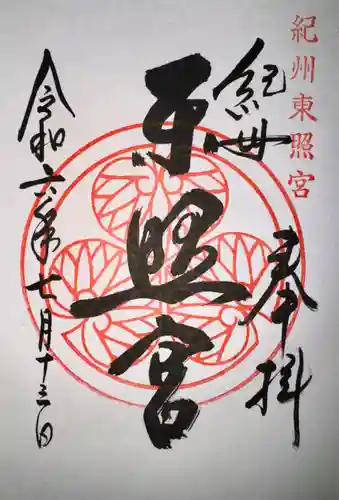 紀州東照宮
奉拝
紀州
東照宮
令和六年七月十三日